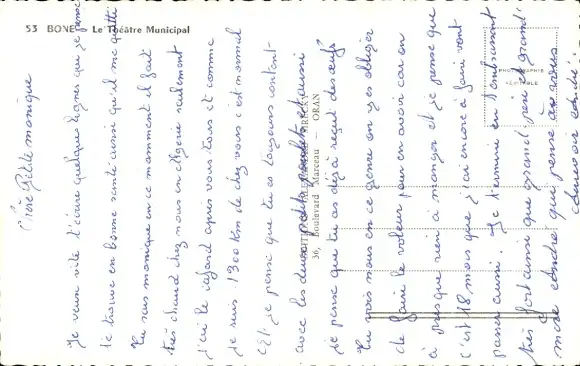 53 BONE - Le Théâtre Municipal
Chère Petite monique
Je veux vite t'écrire quelques lignes que je pense
te trouve en bonne santé ainsi qu'il me quitte
tu vois monique en ce momment il fait
très chaud chez nous en Algérie seulement
j'ai le cafard après vous tous et comme
je suis 1300 Km de chez vous c'est normal
je pense que tu as toujours content
avec les deux petite poulette aussi
je pense que tu as déjà reçut des œufs
tu vois nous en ce genre on est obliger
de faire le voleur pour en avoir car on
a presque rien à manger et je pense que
c'est 18 mois que j'ai encore à faire vont
passer aussi. Je termine en t'embrassant
très fort ainsi que grand père et grand
mère André qui pense à vous
PHOTOGRAPHIE
VÉRITABLE
36, Boulevard Marceau — ORAN